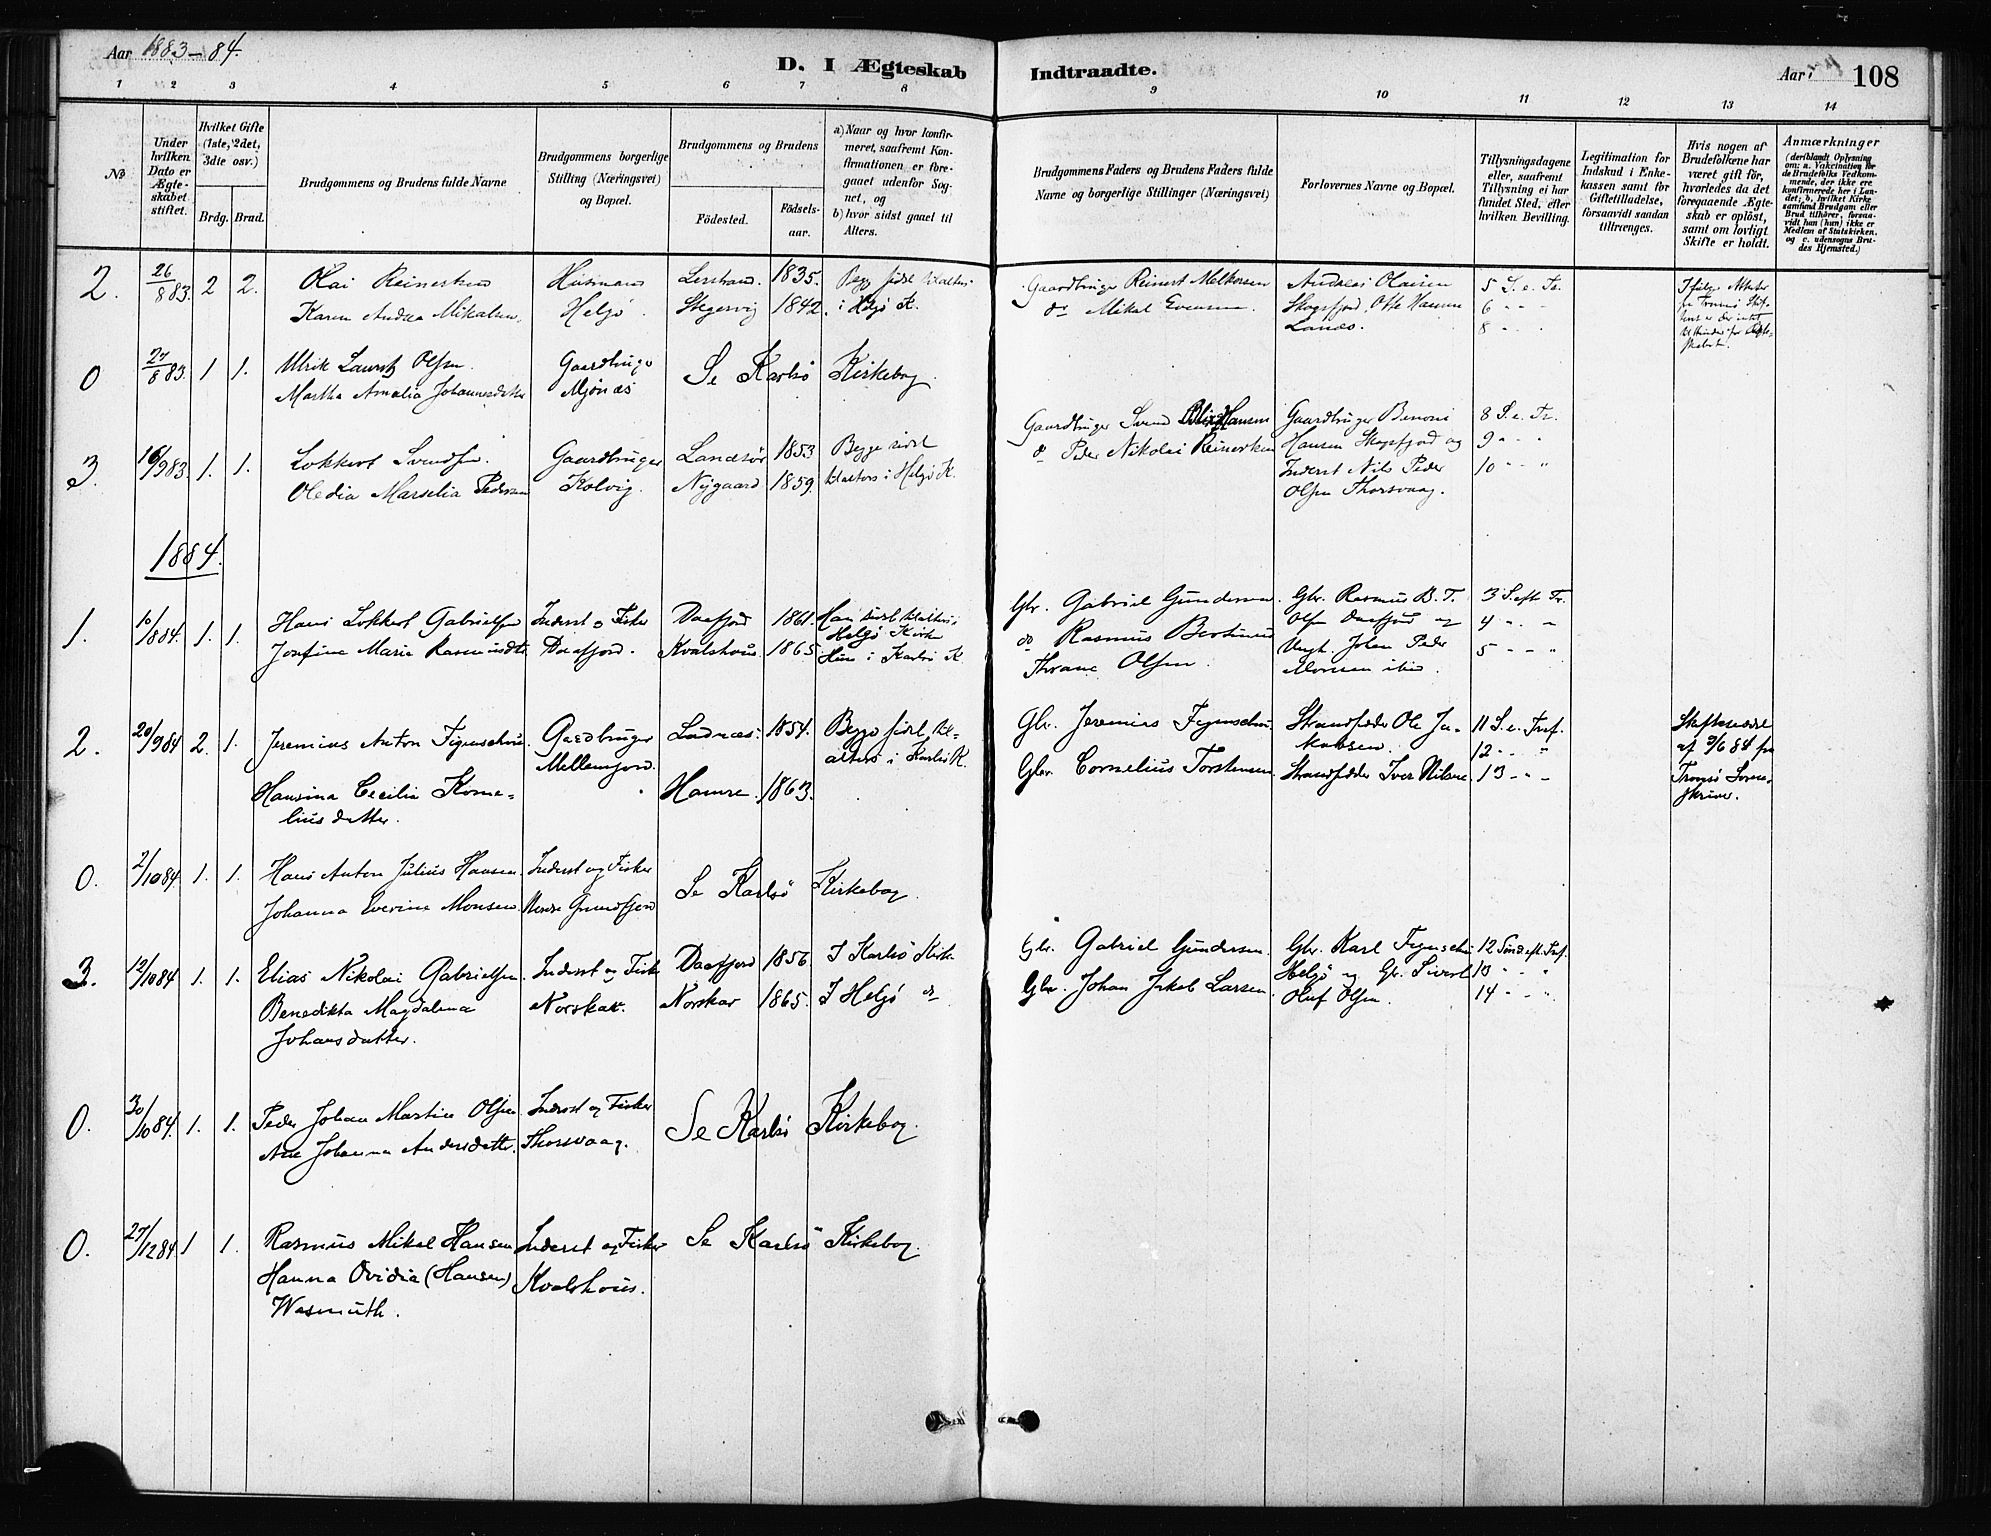 Aar 1883-84.
D. I Ægteskab Indtraadte.
Aar 108
1 2 3 4 5 6 7 8 9 10 11 12 13 14
No
Under hvilken Dato er Ægteskabet stiftet.
Hvilket Gifte (1ste, 2det, 3die osv.)
Brdg. Brud.
Brudgommens og Brudens fulde Navne
Brudgommens borgerlige Stilling (Næringsvei) og Bopæl.
Brudgommens og Brudens
Fødested. Fødselsaar.
a) Naar og hvor konfirmeret, saafremt Konfirmationen er foregaaet udenfor Sognet, og
b) hvor sidst gaaet til Alters.
Brudgommens Faders og Brudens Faders fulde Navne og borgerlige Stillinger (Næringsvei)
Forlovernes Navne og Bopæl.
Tillysningsdagene eller, saafremt Tillysning ei har fundet Sted, efter hvilken Bevilling.
Legitimation for Indskud i Enkekassen samt for Giftetilladelse, forsaavidt saadan tiltrænges.
Hvis nogen af Brudefolkene har været gift før, hvorledes da det foregaaende Ægteskab er opløst, samt om lovligt Skifte er holdt.
Anmærkninger
(deriblandt Oplysning om: a. Vakcination for de Brudefolks Vedkommende, der ikke ere konfirmerede her i Landet; b. hvilket Kirkesamfund Brudgom eller Brud tilhører, forsaavidt han (hun) ikke er Medlem af Statskirken, og c. udensogns Brudes Hjemsted.)
2. 26/8 83. 2 2. Olai Reinertsen Husmand Lerstrand. 1835. Begge sidst til alters
Karen Andrea Mikalsen Helgø. Skogervig 1842. i Helgø K.
Gaardbruger Reinert Melkersen Andreas Olaisen 5 S. e. Tr.
do Mikal Skogsfjord, Otte Hansen 6 " "
8 " "
0 27/8 83. 1 1. Ulrik Lauritz Olsen. Gaardbruger Se Karlsø Kirkebog
Martha Amalia Johannesdatter Mjønæs
3. 16/9 83. 1. 1. Lokkert Svendsen. Gaardbruger Landsør 1853 Begge sidst
Oledia Marselia Pedersen Kolvig. Nygaard 1859. til alters i Helgø K.
Gaardbruger Svend Hansen Gaardbruger Benoni 8 S. e. Tr.
do Peder Nikolai Reinertsen Hansen Skogsfjord og 9 " "
Inderst Nils Peder 10 " "
Olsen Thorsvaag.
1884.
1. 10/8 84. 1. 1. Hans Lokkert Gabrielsen Inderst o Fisker Daafjord 1861. Han sidst til alters i
Helgø Kirke
Josefine Marie Rasmusdtr Daafjord. Kvalshous 1865. Hun i Karlsø K.
Gbr. Gabriel Gundersen. Gbr. Rasmus B. T. 3 S. eft Tr.
do Rasmus Bertinus Olsen Daafjord og 4 " "
Thrane Olsen. Ungk. Johan Peder 5 " "
Monsen ibid.
2. 20/9 84 2. 1. Jeremias Anton Figenschou Gaardbruger Ladnæs. 1854. Begge sidst til
Mellemjord. alters i Karlsø K.
Hansina Cecilia Korne- Hamre. 1863.
liusdatter.
Gbr. Jeremias Figenschou Strandsidder Ole Ja- 11 S. e. Tref.
kobsen. 12 " "
Gbr. Cornelius Torstensen Strandsidder Iver Nilsen. 13 " "
af 3/6 84 fra
Tromsø Soren-
skriver.
0. 2/10 84. 1. 1. Hans Anton Julius Hansen Inderst og Fisker Se Karlsø Kirkebog.
Johanna Everine Monsen. Nordre Grundfjord
3. 12/10 84 1. 1. Elias Nikolai Gabrielsen Inderst og Fisker Daafjord 1856 I Karlsø Kirke
Benedikta Magdalena Norskat. Norskar 1865. I Helgø do
Johansdatter.
Gbr. Gabriel Gundersen. Gbr. Karl Figenschou 12 Sønd. eft. Tref.
Helgø og Gbr. Sivert 13 " "
Gbr. Johan Jakob Larsen. Oluf Olsen. 14 " "
0. 30/10 84. 1. 1. Peder Johan Martin Olsen Inderst og Fisker Se Karlsø Kirkebog.
Ane Johanna Andersdatter. Thorsvaag.
0. 27/12 84 1 1. Rasmus Mikal Hansen Inderst og Fisker Se Karlsø Kirkebog.
Hanna Ovidia (Hansen) Kvalshous.
Wasmuth.